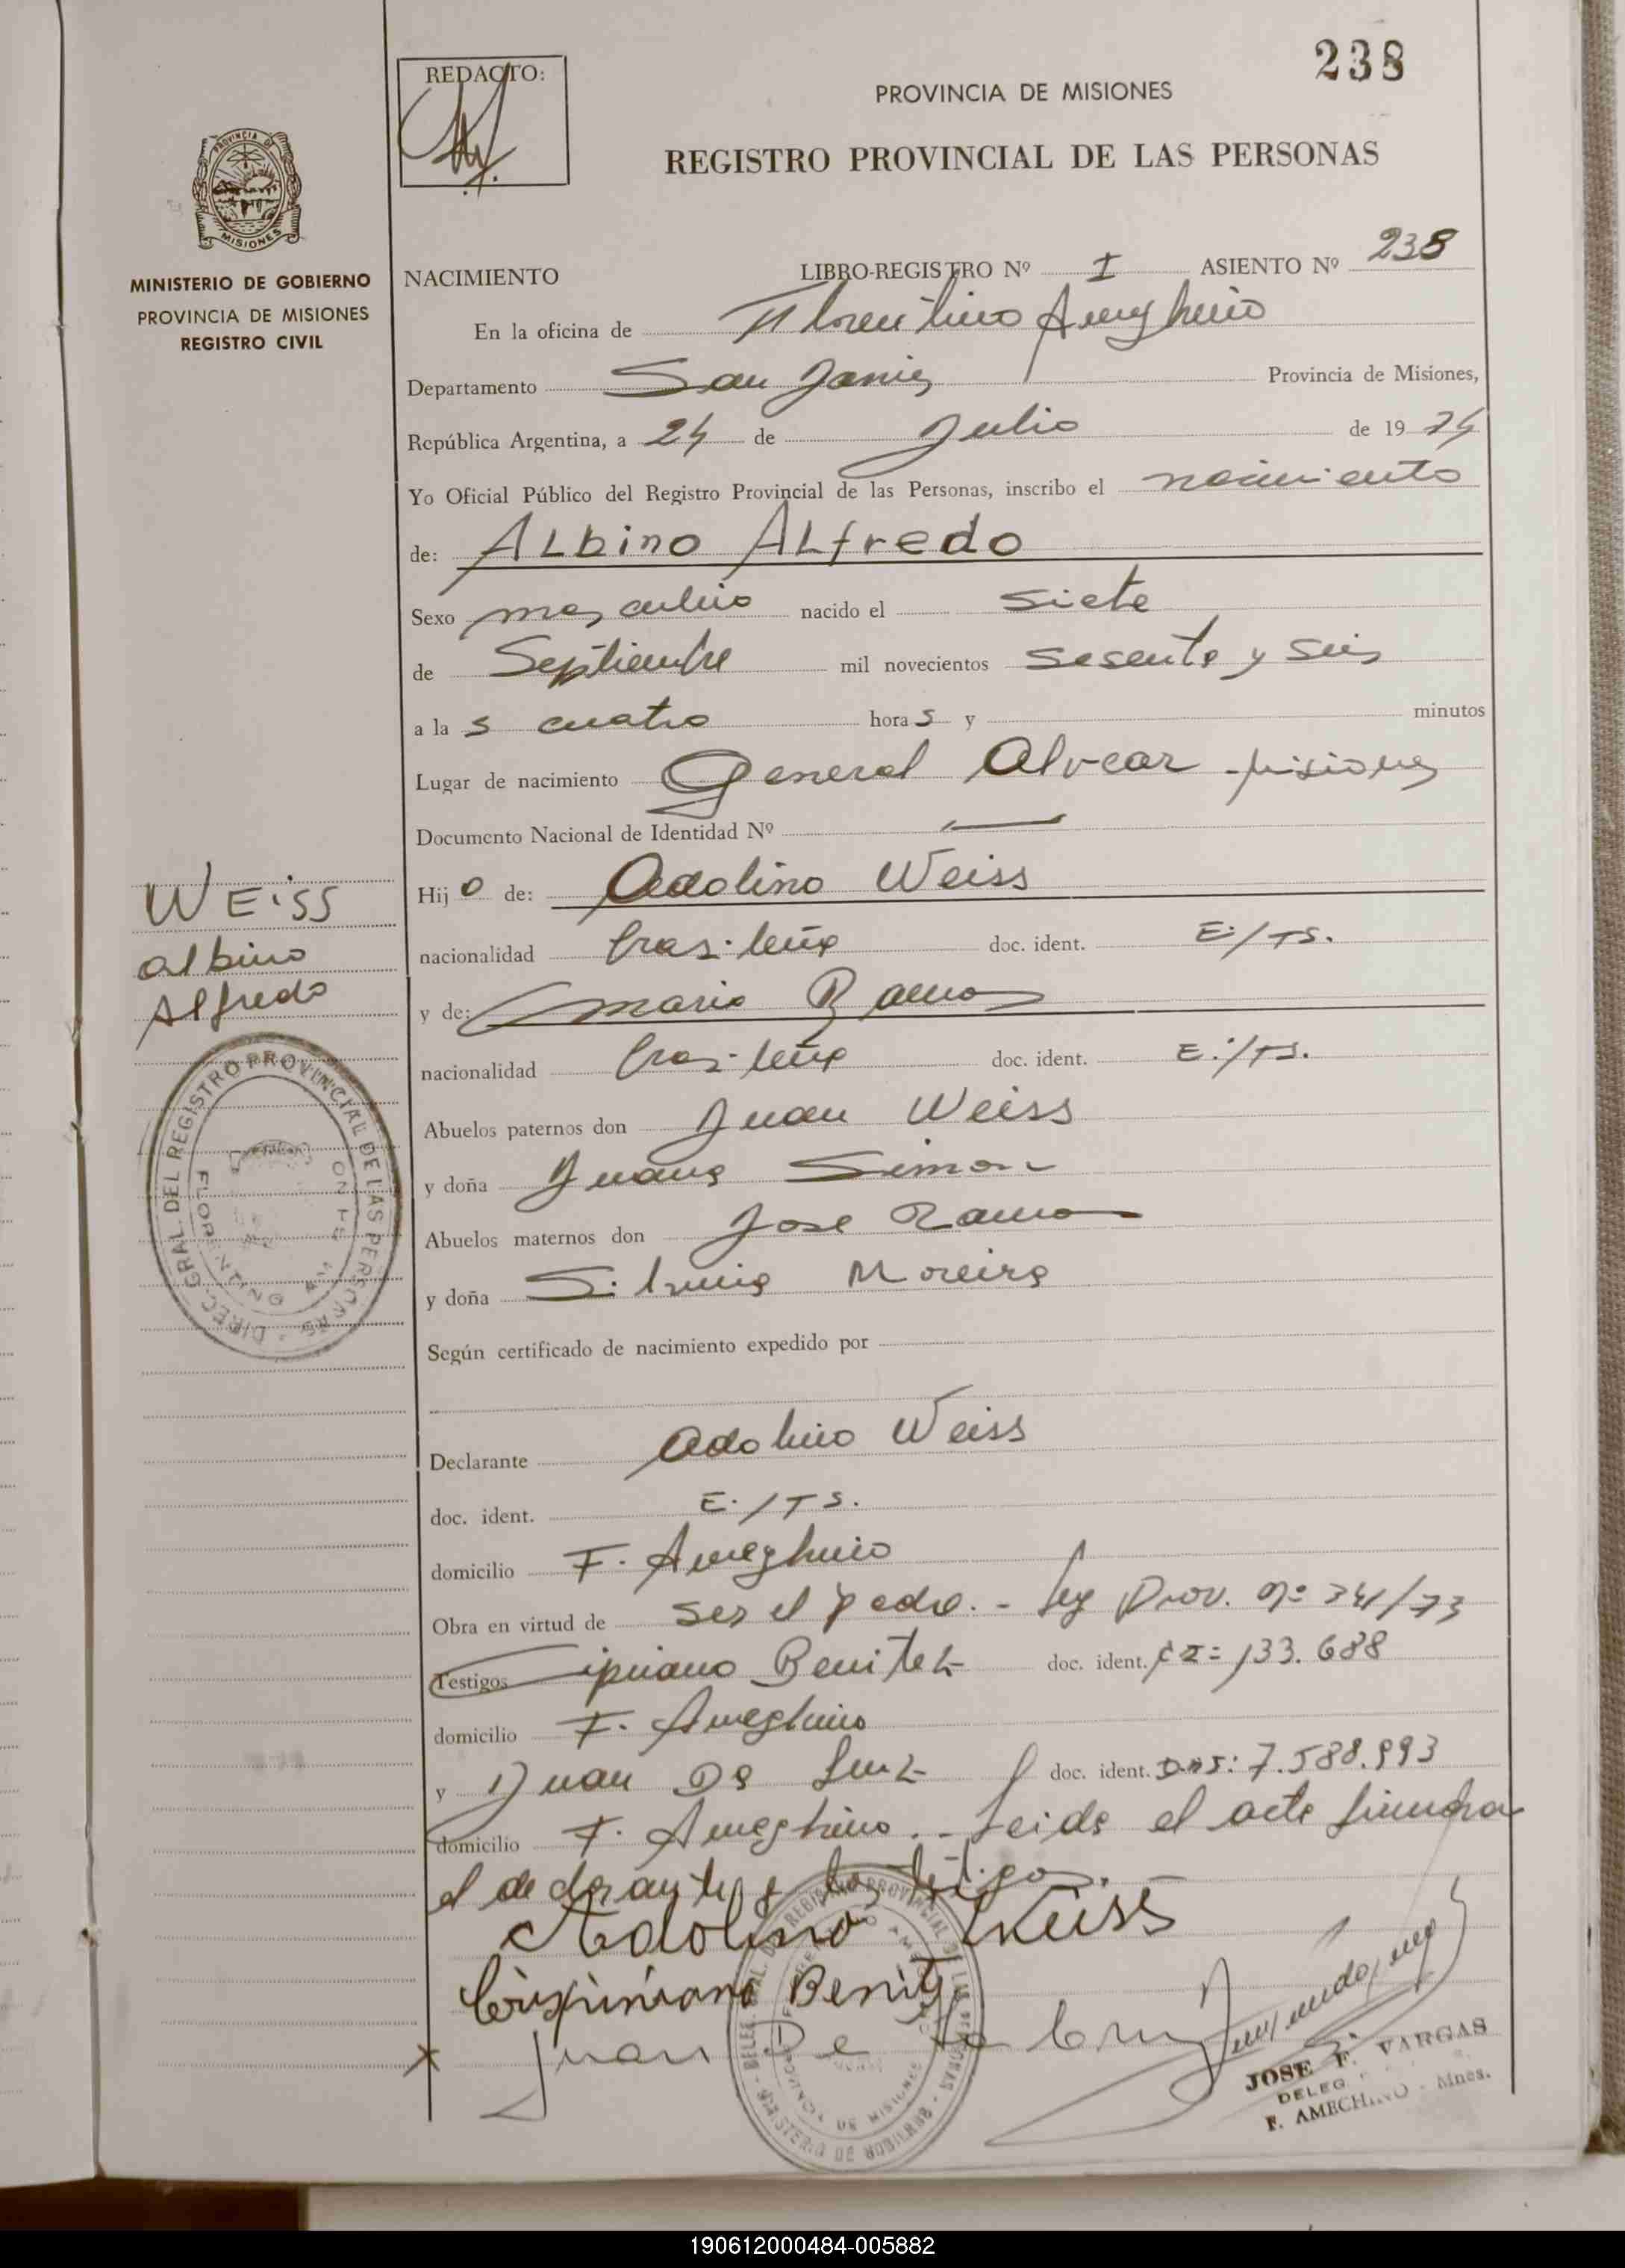 238
REDACTO:
PROVINCIA DE MISIONES
REGISTRO PROVINCIAL DE LAS PERSONAS
PROVINCIA DE
MISIONES
MINISTERIO DE GOBIERNO
PROVINCIA DE MISIONES
REGISTRO CIVIL
NACIMIENTO LIBRO-REGISTRO Nº I ASIENTO Nº 238
En la oficina de Florentino Ameghino
Departamento San Javier Provincia de Misiones,
República Argentina, a 24 de Julio de 1974
Yo Oficial Público del Registro Provincial de las Personas, inscribo el nacimiento
de: ALbino ALfredo
Sexo masculino nacido el siete
de Septiembre mil novecientos sesenta y seis
a las cuatro horas y minutos
Lugar de nacimiento General Alvear - Misiones
Documento Nacional de Identidad Nº —
Hijo de: Adolino Weiss
nacionalidad brasileña doc. ident. E./TS.
y de: Maria Ramos
nacionalidad brasileña doc. ident. E./TS.
Abuelos paternos don Juan Weiss
y doña Juana Simon
Abuelos maternos don Jose Ramos
y doña Silvinia Moreira
Según certificado de nacimiento expedido por
Declarante Adolino Weiss
doc. ident. E./TS.
domicilio F. Ameghino
Obra en virtud de ser el padre. - Ley Prov. nº 341/73
Testigos Cipriano Benitez doc. ident. 133.688
domicilio F. Ameghino
y Juan Da Luz doc. ident. 7.588.993
domicilio F. Ameghino. - Leida el acta firmada
el declarante y los testigos.
Adolino Weiss
Crispiniano Benitez
x Juan De
JOSE F. VARGAS
DELEG
F. AMEGHINO - Mnes.
WEiSS
albino
Alfredo
DIREC. GRAL. DEL REGISTRO PROVINCIAL DE LAS PERSONAS
FLORENTINO AM
190612000484-005882